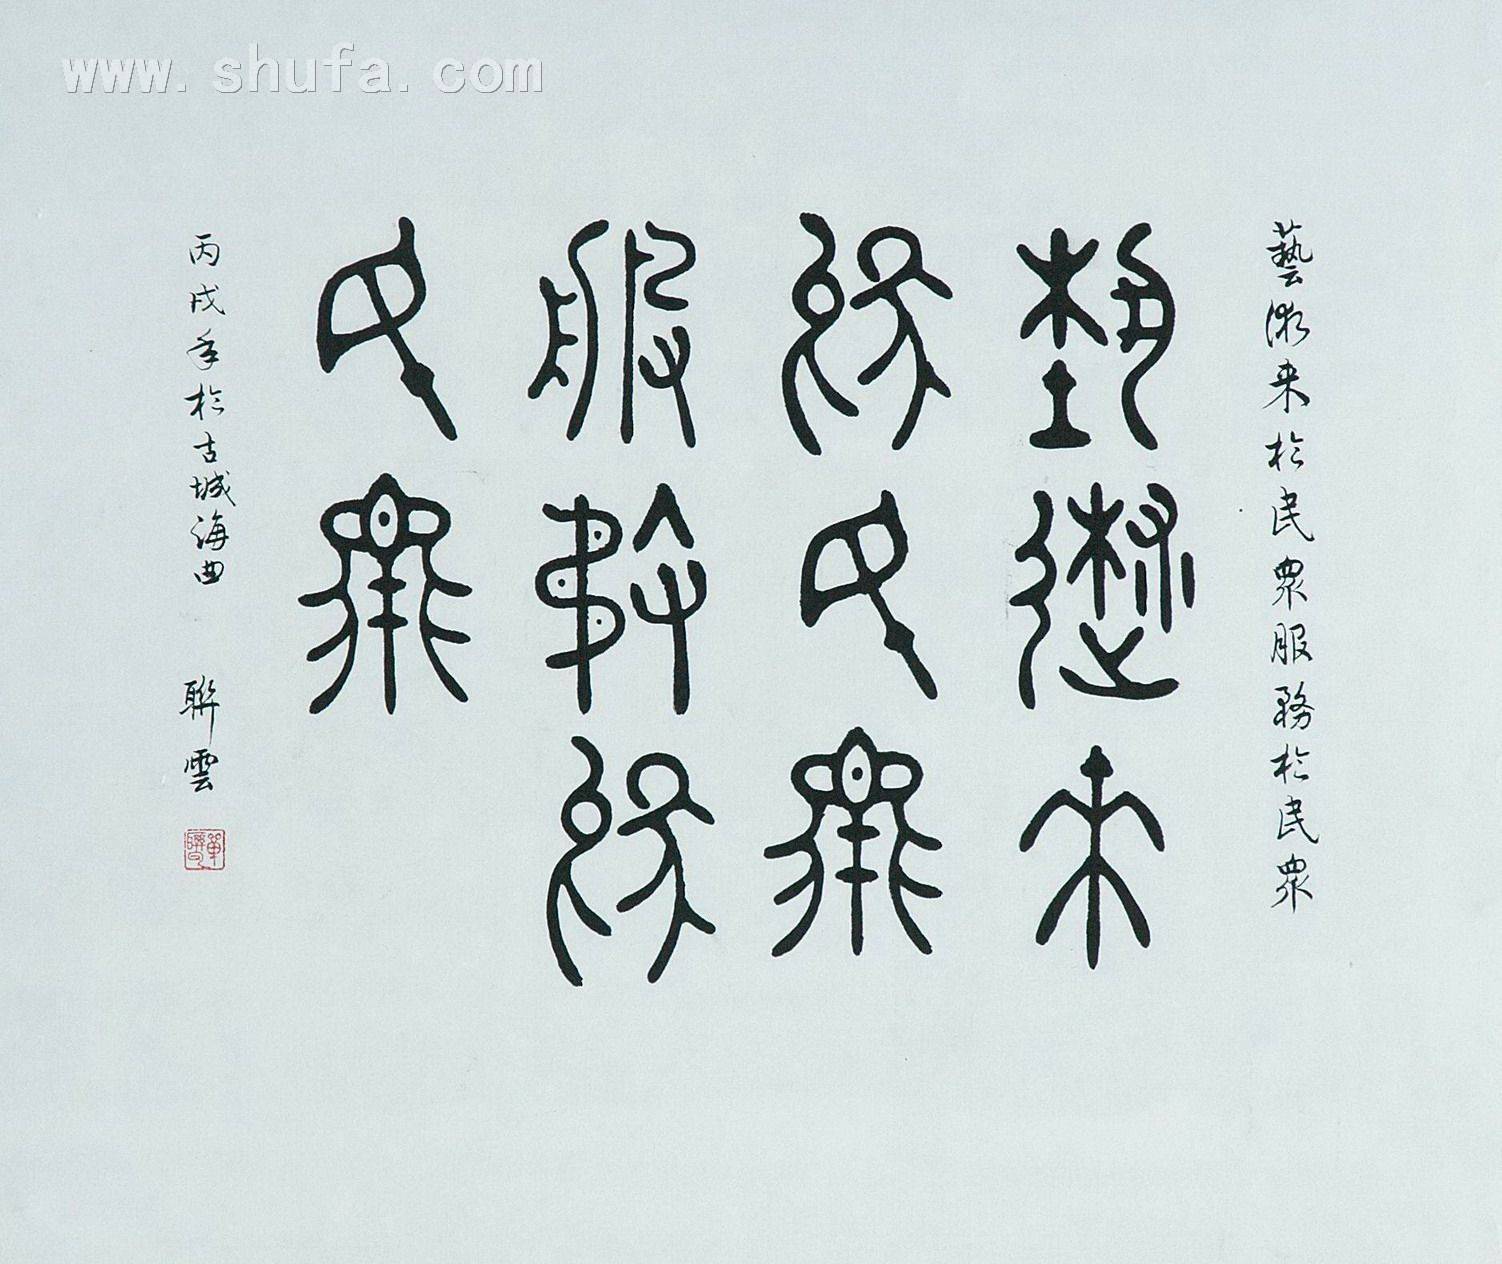 www.shufa.com
藝術来於民眾服務於民眾
藝術来
於民眾
服務於
民眾
丙戌年於古城海曲 聯雲